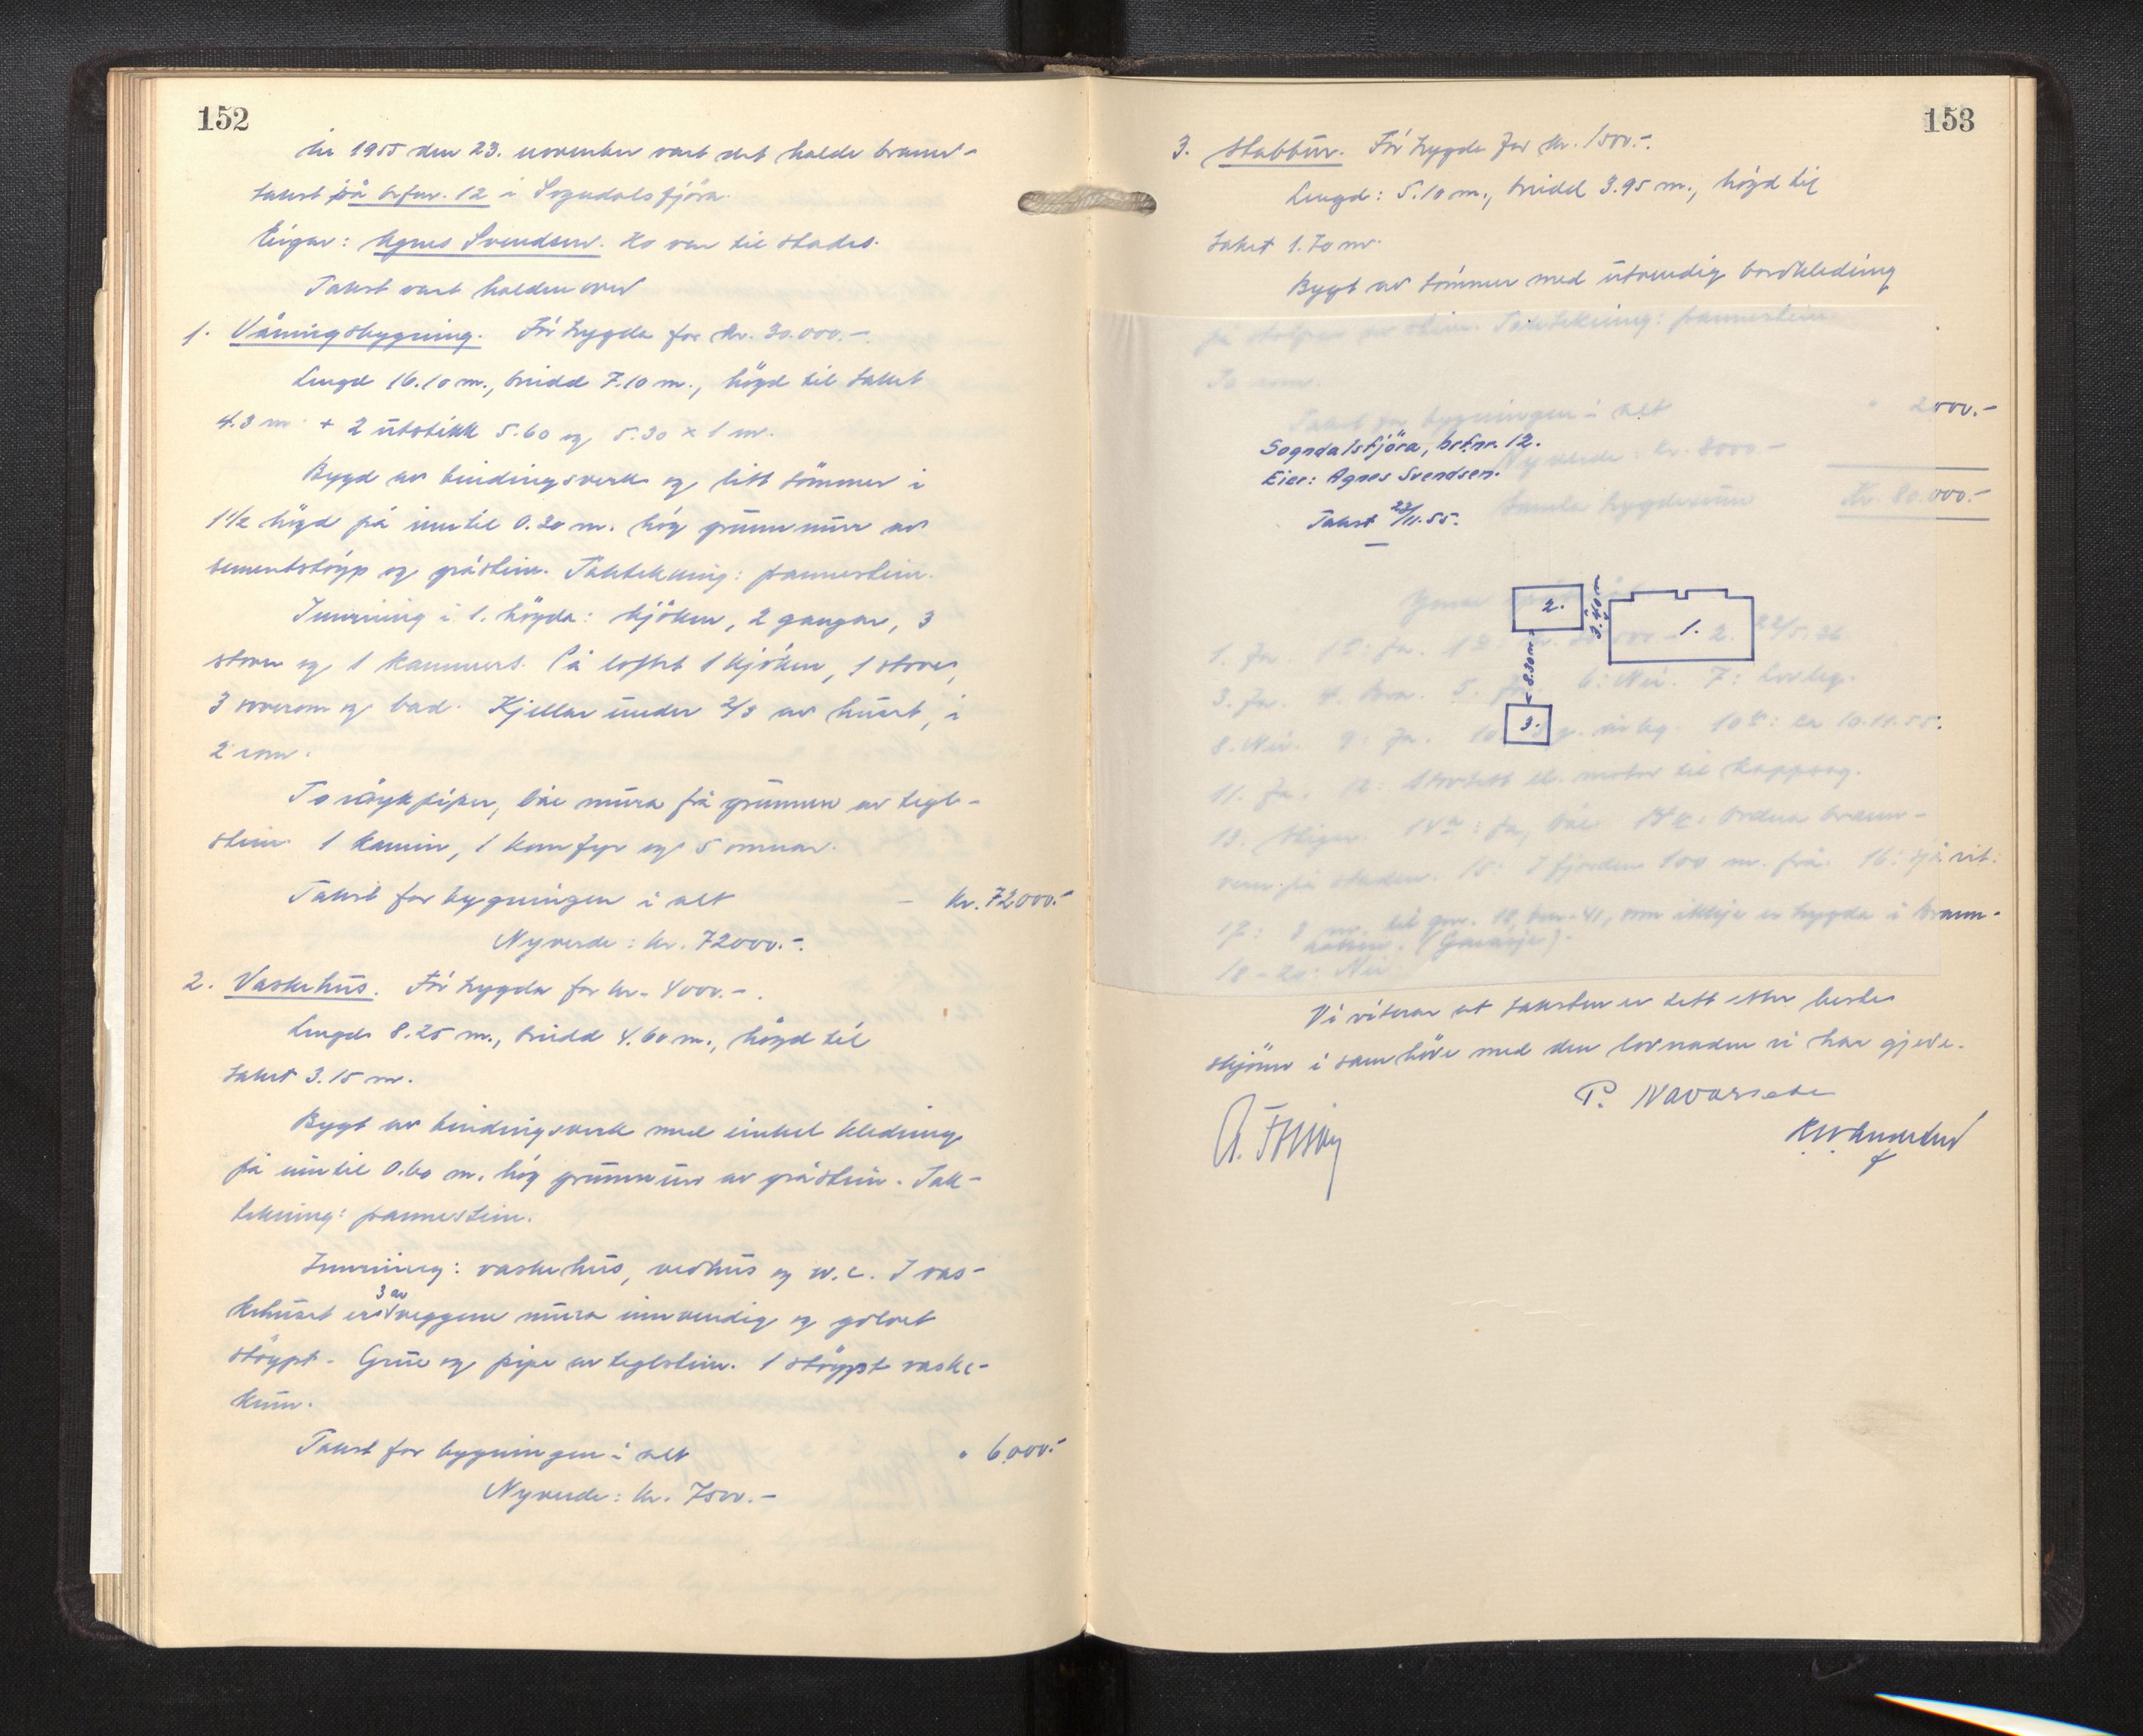 152
År 1955 den 23. november vart det halde brann-
takst på brfnr. 12 i Sogndalsfjöra.
Eigar: Agnes Svendsen. Ho var til stades.
Takst vart halden over
1. Våningsbygning. För trygda for kr. 30.000.-
Lengd 16.10 m., breidd 7.10 m., högd til taket
4.3 m + 2 utstikk 5.60 og 5.30 x 1 m.
Bygd av bindingsverk og litt tömmer i
1 1/2 högd på inntil 0.20 m. hög grunnmur av
sementstöyp og gråstein. Taktekning: pannestein.
Innreiing i 1. högda: kjöken, 2 gangar, 3
stover og 1 kammers. På loftet 1 kjöken, 1 stove,
3 soverom og bad. Kjellar under 2/3 av huset, i
2 rom.
To röykpiper, båe mura frå grunnen av tegl-
stein. 1 kamin, 1 komfyr og 5 omnar.
Takst for bygningen i alt - kr. 72000.-
Nyverde: kr. 72000.-
2. Vaskehus. För trygda for kr. 4000.-
Lengd 8.25 m., breidd 4.60 m., högd til
taket 3.15 m.
Bygt av bindingsverk med enkel kledning
på inntil 0.60 m. hög grunnmur av gråstein. Tak-
tekning: pannestein.
Innreiing: vaskehus, vedhus og w.c. I vas-
kehuset er 3 av veggene mura innvendig og golvet
stöypt. Grue og pipe av teglstein. 1 stöypt vaske-
kum.
Takst for bygningen i alt " 6.000.-
Nyverde: kr. 7500.-
153
3. Stabbur. För trygda for kr. 1500.-
Lengd: 5.10 m., breidd 3.95 m., högd til
taket 1.70 m.
Bygt av tömmer med utvendig bordkledning
på stolper av stein. Taktekning: pannestein.
To rom.
Takst for bygningen i alt " 2000.-
Nyverde: kr. 8000.-
Samla trygdesum Kr. 80.000.-
Sogndalsfjöra, brfnr. 12.
Eier: Agnes Svendsen.
Takst 23/11.55.
2.
3.40 m
1.
8.30 m
3.
3. Ja. 4. Bra. 5. Ja. 6: Nei. 7: Lovleg.
8. Nei. 9: Ja. 10.11.55.
11. Ja. 12: 1 kortett el. motor til kappsag.
13. Stigar. 14 a: Ja, båe. 14 b: Ordna brann-
vern på staden. 15: I fjorden 100 m. frå. 16: Sjå rit.
17: 8 m. til gnr. 18, bnr. 41, som ikkje er trygda i Brann-
kassen. (Garasje).
18-20: Nei
Vi vitnar at taksten er sett etter beste
skjönn i samhöve med den lovnaden vi har gjeve.
P. Navarsete